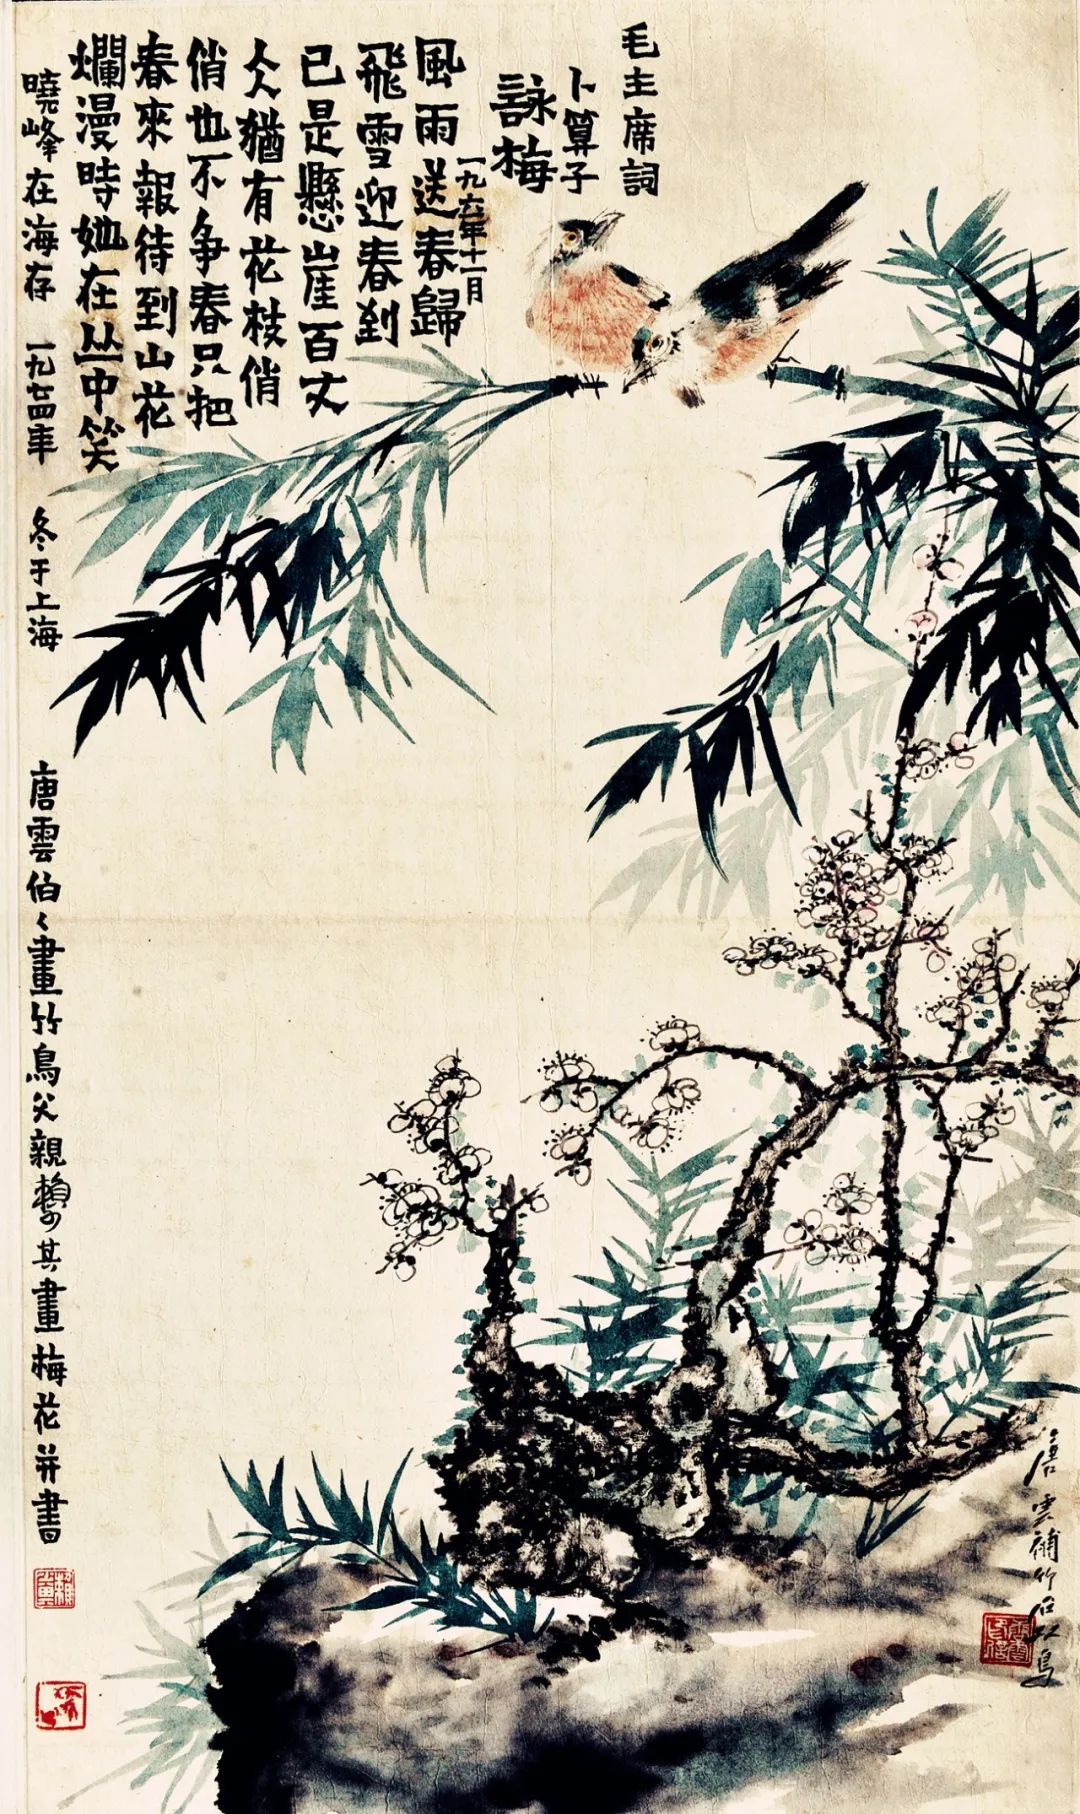 毛主席詞
卜算子
詠梅
一九六一年十二月
風雨送春歸
飛雪迎春到
已是懸崖百丈
仌猶有花枝俏
俏也不争春只把
春來報待到山花
爛漫時她在丛中笑
曉峰在海存 一九七四年 冬于上海 唐雲伯〻畫竹鳥父親賴少其畫梅花并書
唐雲補竹石双鳥